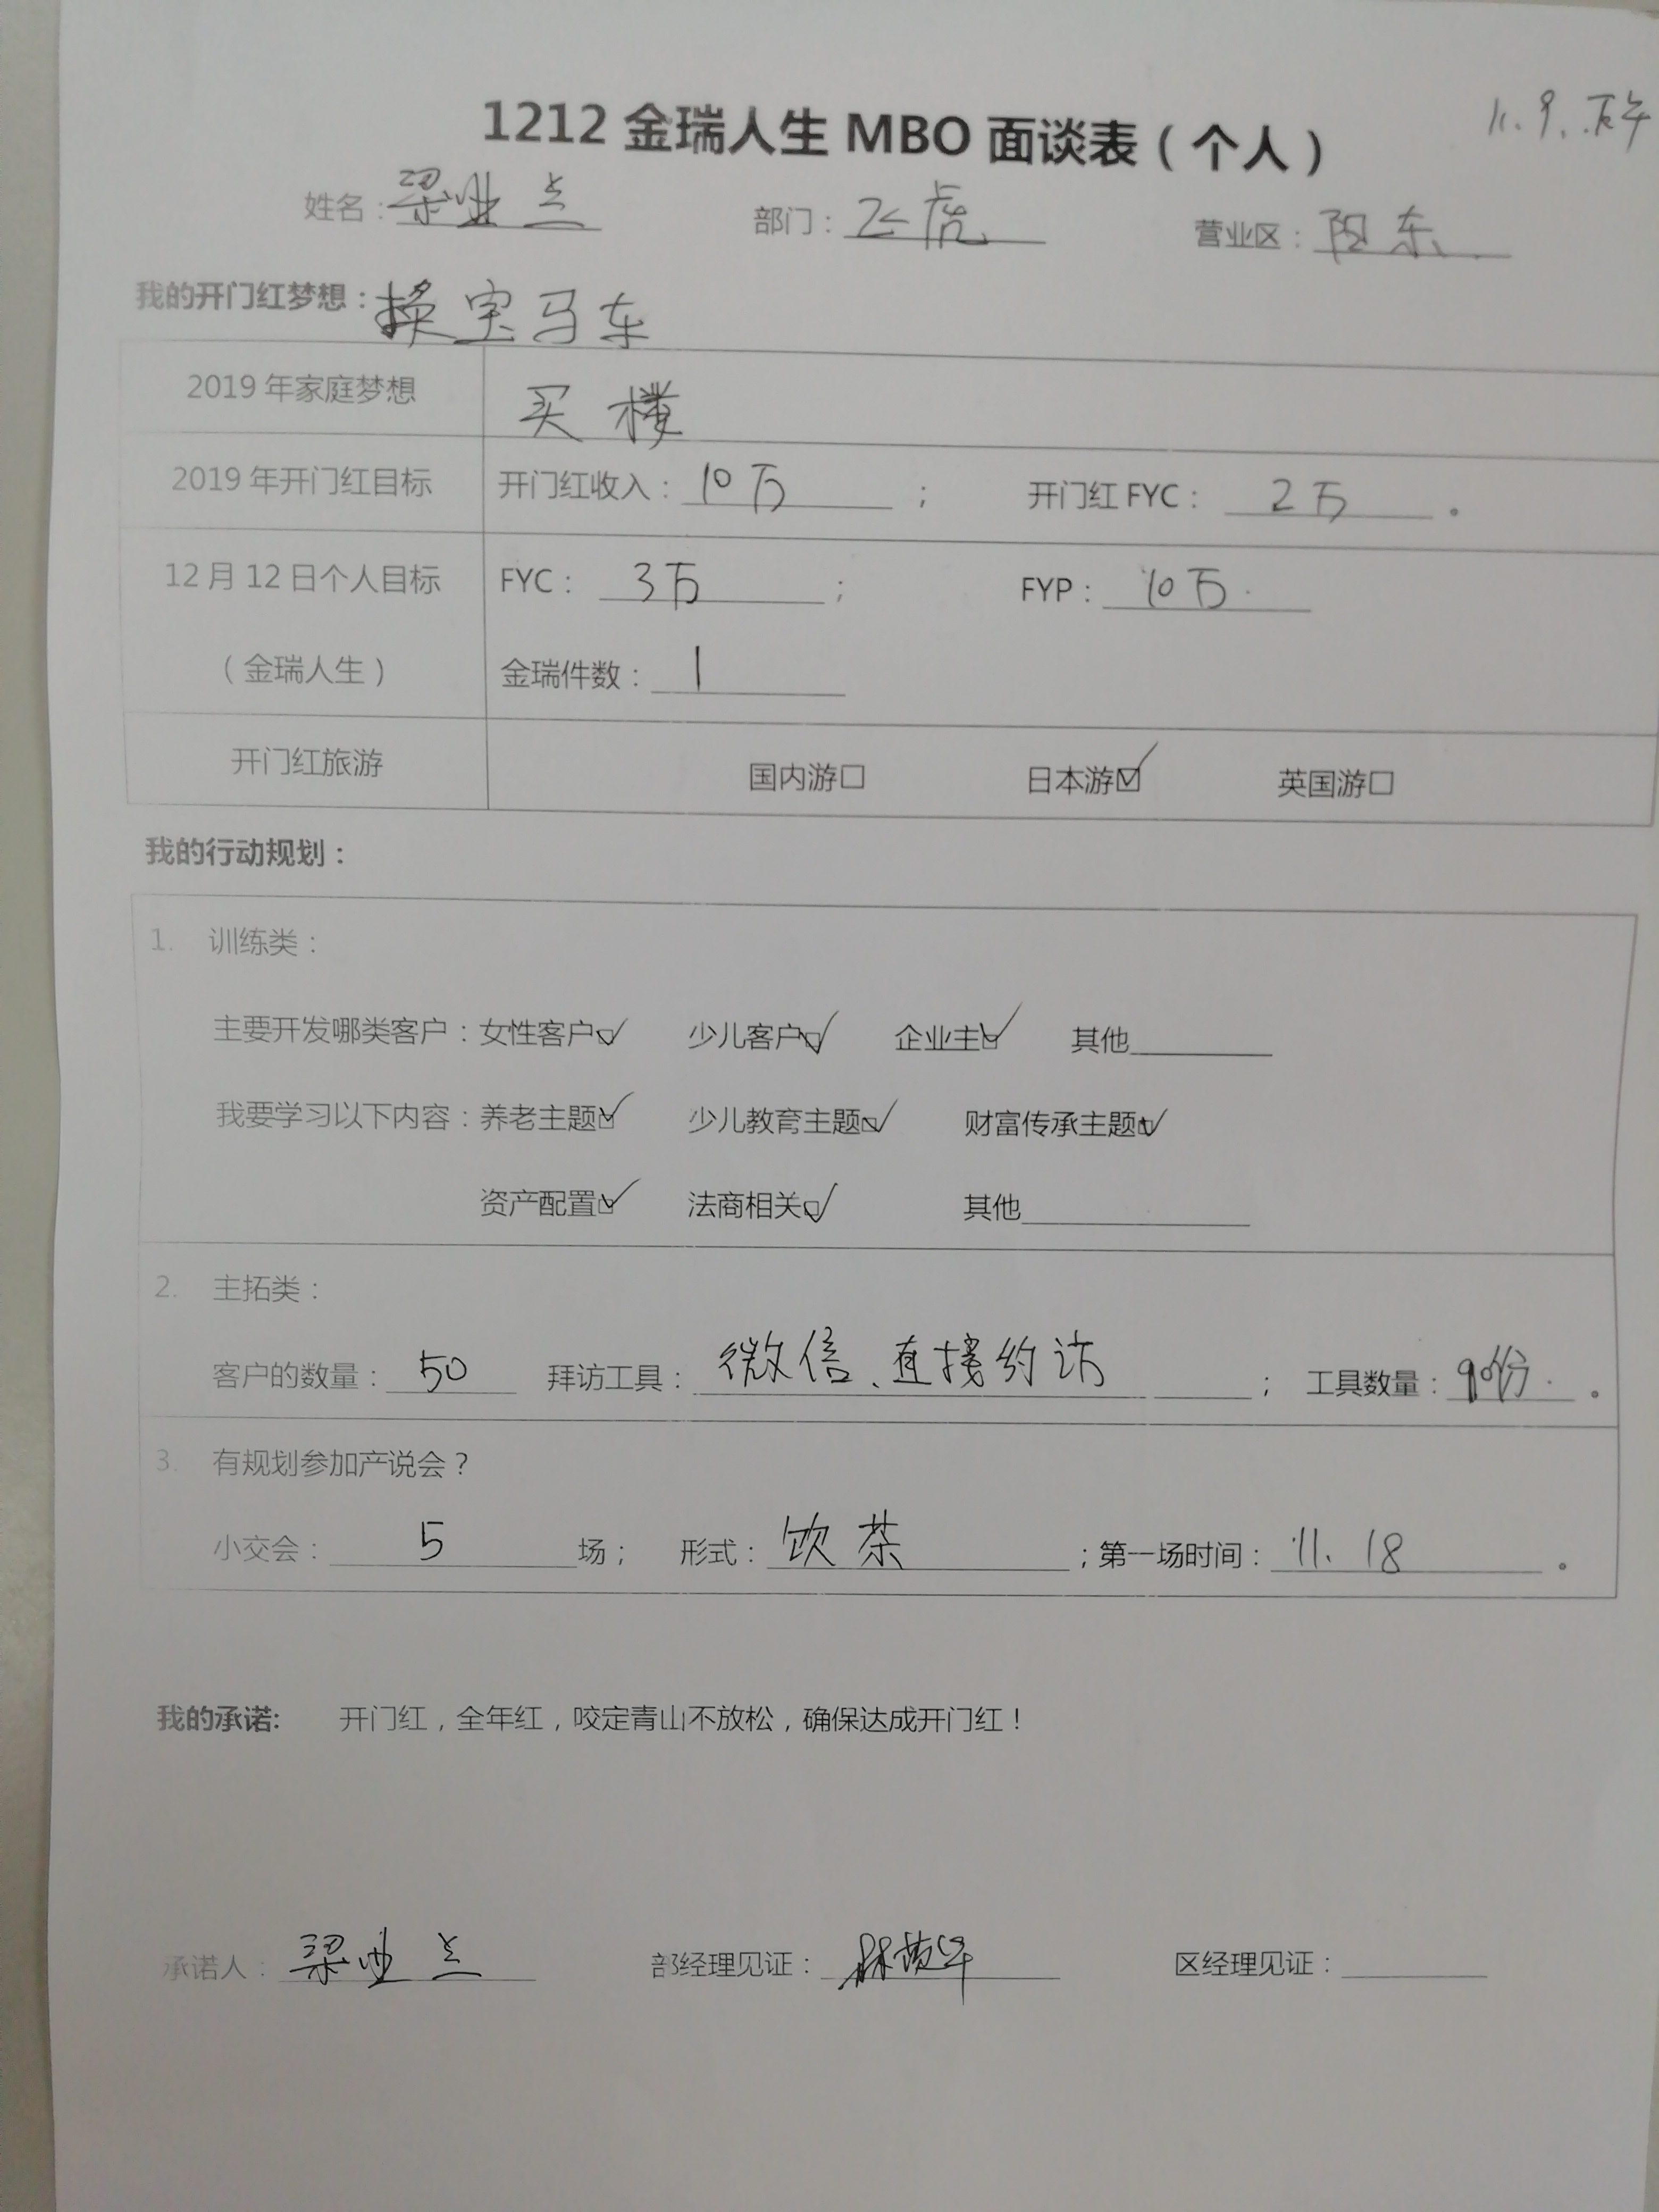 11.9.下午
1212 金瑞人生 MBO 面谈表（个人）
姓名：梁业兰 部门：飞虎 营业区：阳东
我的开门红梦想：换宝马车
2019 年家庭梦想 买楼
2019 年开门红目标 开门红收入：10万； 开门红 FYC：2万。
12 月 12 日个人目标 FYC：3万； FYP：10万.
（金瑞人生） 金瑞件数：1
开门红旅游 国内游□ 日本游☑ 英国游□
我的行动规划：
1. 训练类：
主要开发哪类客户：女性客户☑ 少儿客户☑ 企业主☑ 其他
我要学习以下内容：养老主题☑ 少儿教育主题☑ 财富传承主题☑
资产配置☑ 法商相关☑ 其他
2. 主拓类：
客户的数量：50 拜访工具：微信、直接约访； 工具数量：90份.。
3. 有规划参加产说会？
小交会：5场； 形式：饮茶；第一场时间：11.18。
我的承诺: 开门红，全年红，咬定青山不放松，确保达成开门红！
承诺人：梁业兰 部经理见证： 区经理见证：